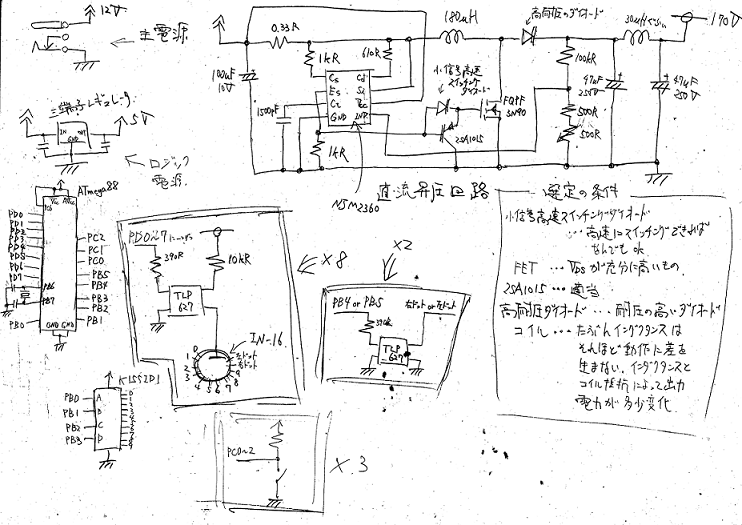 12V
主電源
三端子レギュレータ
IN OUT
GND
5V
ロジック
電源
100uF
10V
0.33R
1kR
610R
Cs
Es
Ct
GND
Cd
Si
Vcc
INV
1500pF
1kR
NJM2360
180uH
小信号高速
スイッチング
ダイオード
2SA1015
FQPF
5N90
高耐圧のダイオード
100kR
500R
500R
47uF
250V
30uHぐらい
47uF
250V
170V
直流昇圧回路
選定の条件
小信号高速スイッチングダイオード
…高速にスイッチングできれば
なんでもok
FET … VDSが充分に高いもの.
2SA1015 … 適当
高耐圧ダイオード … 耐圧の高いダイオード
コイル … たぶんインダクタンスは
それほど動作に差を
生まない. インダクタンスと
コイル抵抗によって出力
電力が多少変化
ATmega88
Vcc
AVcc
PD0
PD1
PD2
PD3
PD4
PD5
PD6
PD7
PB6
PB7
PB0
PC2
PC1
PC0
PB5
PB4
PB3
PB2
PB1
GND GND
K155ID1
PB0
PB1
PB2
PB3
A
B
C
D
0
1
2
3
4
5
6
7
8
9
PD0~7
390R
10kR
TLP
627
IN-16
0
1
2
3
4
5
6
7
8
9
左ドット
右ドット
×8
×2
PB4 or PB5
左ドット or 右ドット
390R
TLP
627
PC0~2
×3